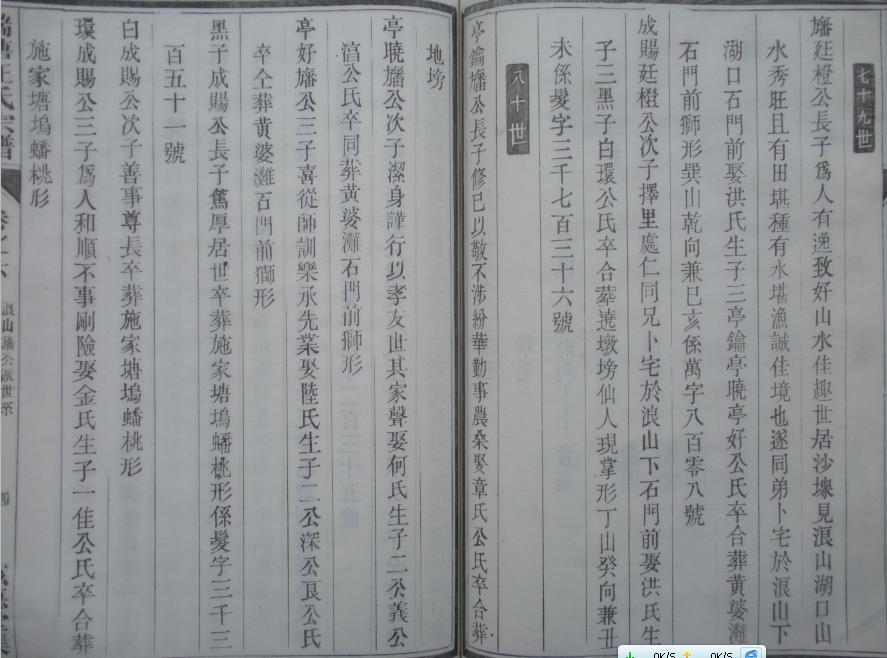 七十九世
旙廷橙公長子爲人有逸致好山水佳趣世居沙墺見浪山湖口山
水秀旺且有田堪種有水堪漁誠佳境也遂同弟卜宅於浪山下
湖口石門前娶洪氏生子三亭鑰亭曉亭好公氏卒合葬黄婆灘
石門前獅形巽山乾向兼巳亥係萬字八百零八號
成賜廷橙公次子擇里處仁同兄卜宅於浪山下石門前娶洪氏生
子三黑子白環公氏卒合葬遶墩塝仙人現掌形丁山癸向兼丑
未係髮字三千七百三十六號
八十世
亭鑰旙公長子修已以敬不涉紛華勤事農桑娶章氏公氏卒合葬
地塝
亭曉旙公次子潔身謹行以孝友世其家聲娶何氏生子二公義公
滈公氏卒同葬黄婆灘石門前獅形
亭好旙公三子喜從師訓樂承先業娶陸氏生子二公深公良公氏
卒仝葬黄婆灘石門前獅形
黑子成賜公長子篤厚居世卒葬施家塘塢蟠桃形係髮字三千三
百五十一號
白成賜公次子善事尊長卒葬施家塘塢蟠桃形
環成賜公三子爲人和順不事剛險娶金氏生子一佳公氏卒合葬
施家塘塢蟠桃形
塘汪氏宗譜
卷之六
浪山旙公派世系
四
0K/S
0K/S